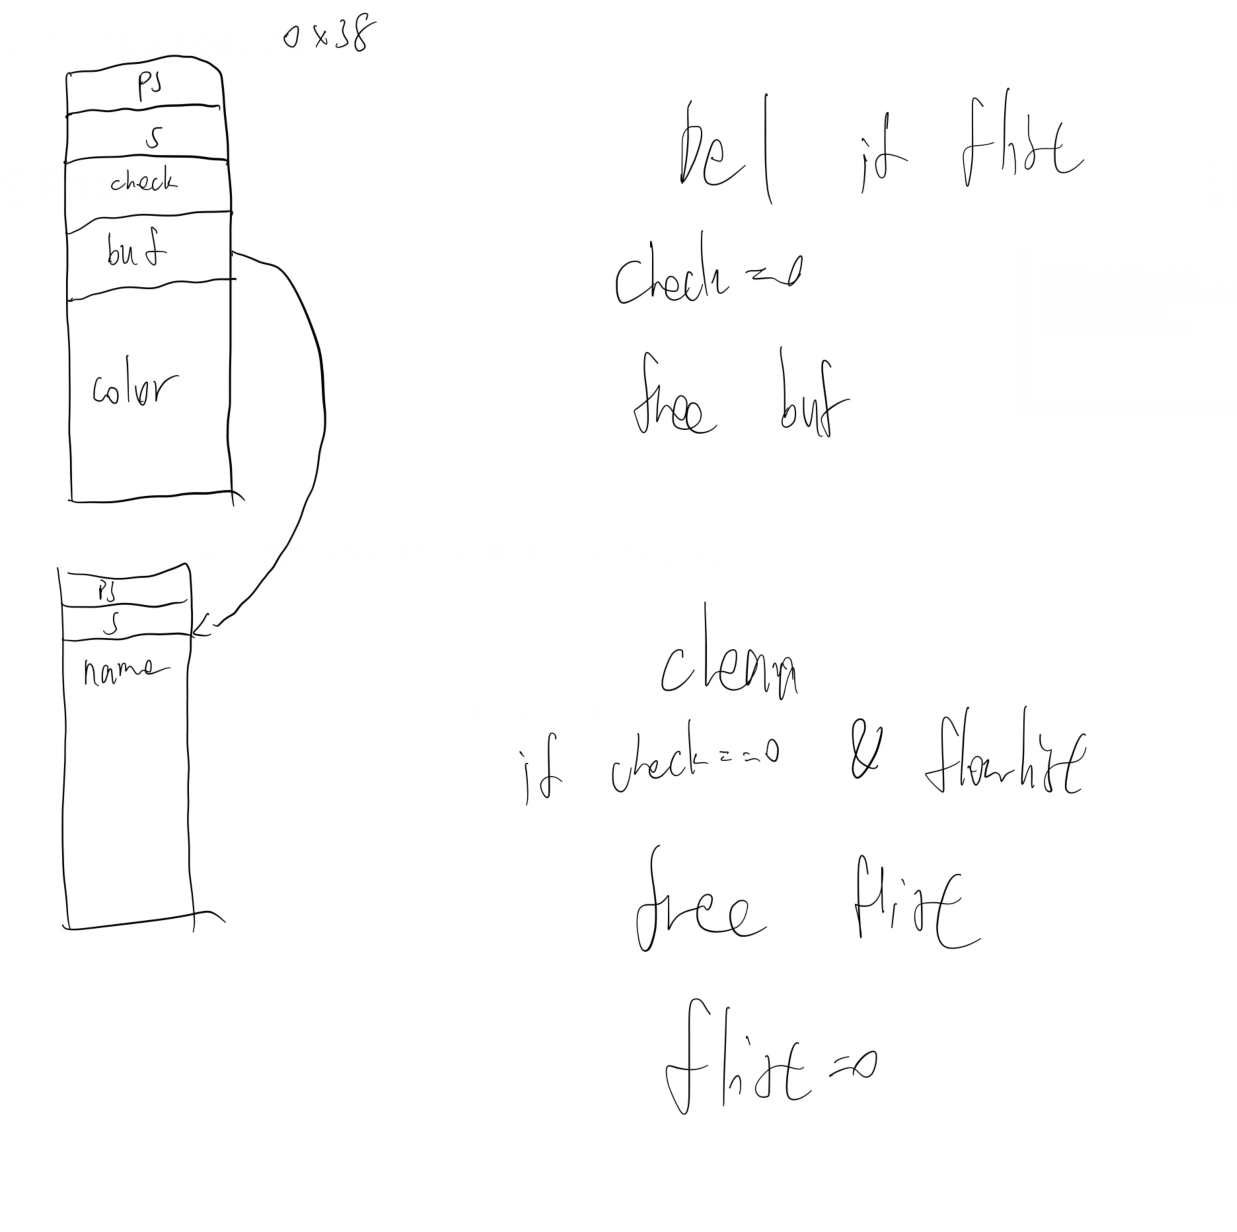 0x38
ps
s
check
buf
color
ps
s
name
del if flist
check=0
free buf
clean
if check==0 & flowlist
free flist
flist=0